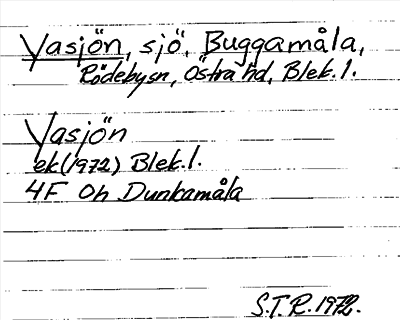 Yasjön, sjö, Buggamåla,
Rödebysn, Östra hd, Blek. l.
Yasjön
ek (1972) Blek. l.
4F 0h Dunkamåla
S.T.R. 1972.